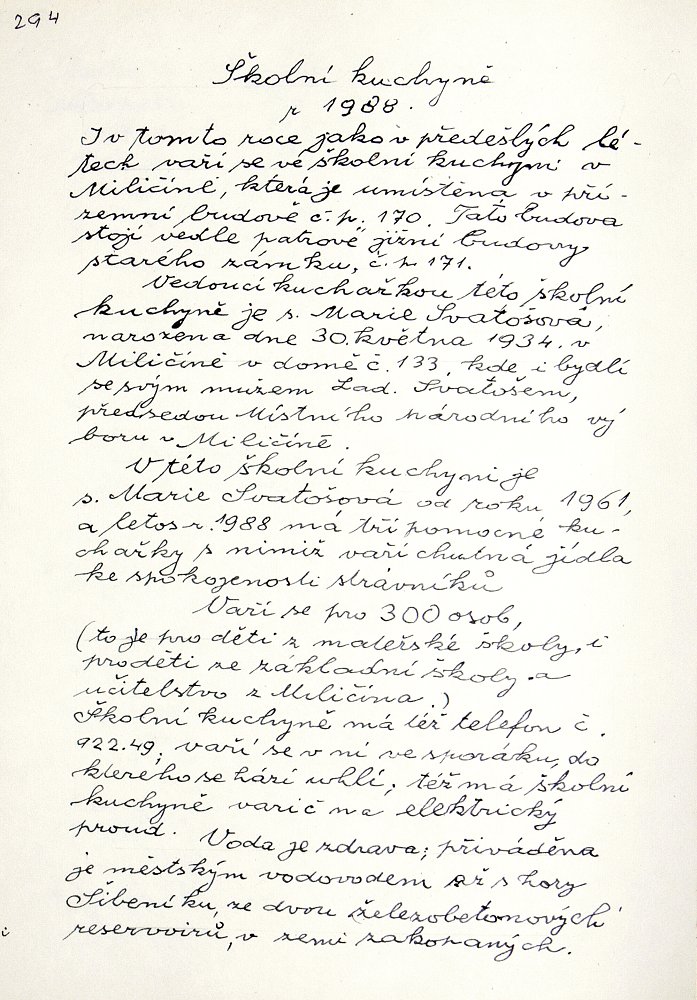 294
Školní kuchyně
r 1988.
I v tomto roce jako v předešlých lé-
tech vaří se ve školní kuchyni v
Miličíně, která je umístěna v pří-
zemní budově č. p. 170. Tato budova
stojí vedle patrové jižní budovy
starého zámku, č. p. 171.
Vedoucí kuchařkou této školní
kuchyně je s. Marie Svatošová,
narozena dne 30. května 1934. v
Miličíně v domě č. 133, kde i bydlí
se svým mužem Lad. Svatošem,
předsedou Místního národního vý
boru v Miličíně.
V této školní kuchyni je
s. Marie Svatošová od roku 1961,
a letos r. 1988 má tři pomocné ku-
chařky s nimiž vaří chutná jídla
ke spokojenosti strávníků
Vaří se pro 300 osob,
(to je pro děti z mateřské školy, i
pro děti ze základní školy a
učitelstvo z Miličína.)
Školní kuchyně má též telefon č.
922.49; vaří se v ní ve sporáku, do
kterého se hází uhlí; též má školní
kuchyně varič na elektrický
proud. Voda je zdrava; přiváděna
je městským vodovodem až s hory
Šibeníku, ze dvou železobetonových
reservoirů, v zemi zakopaných.